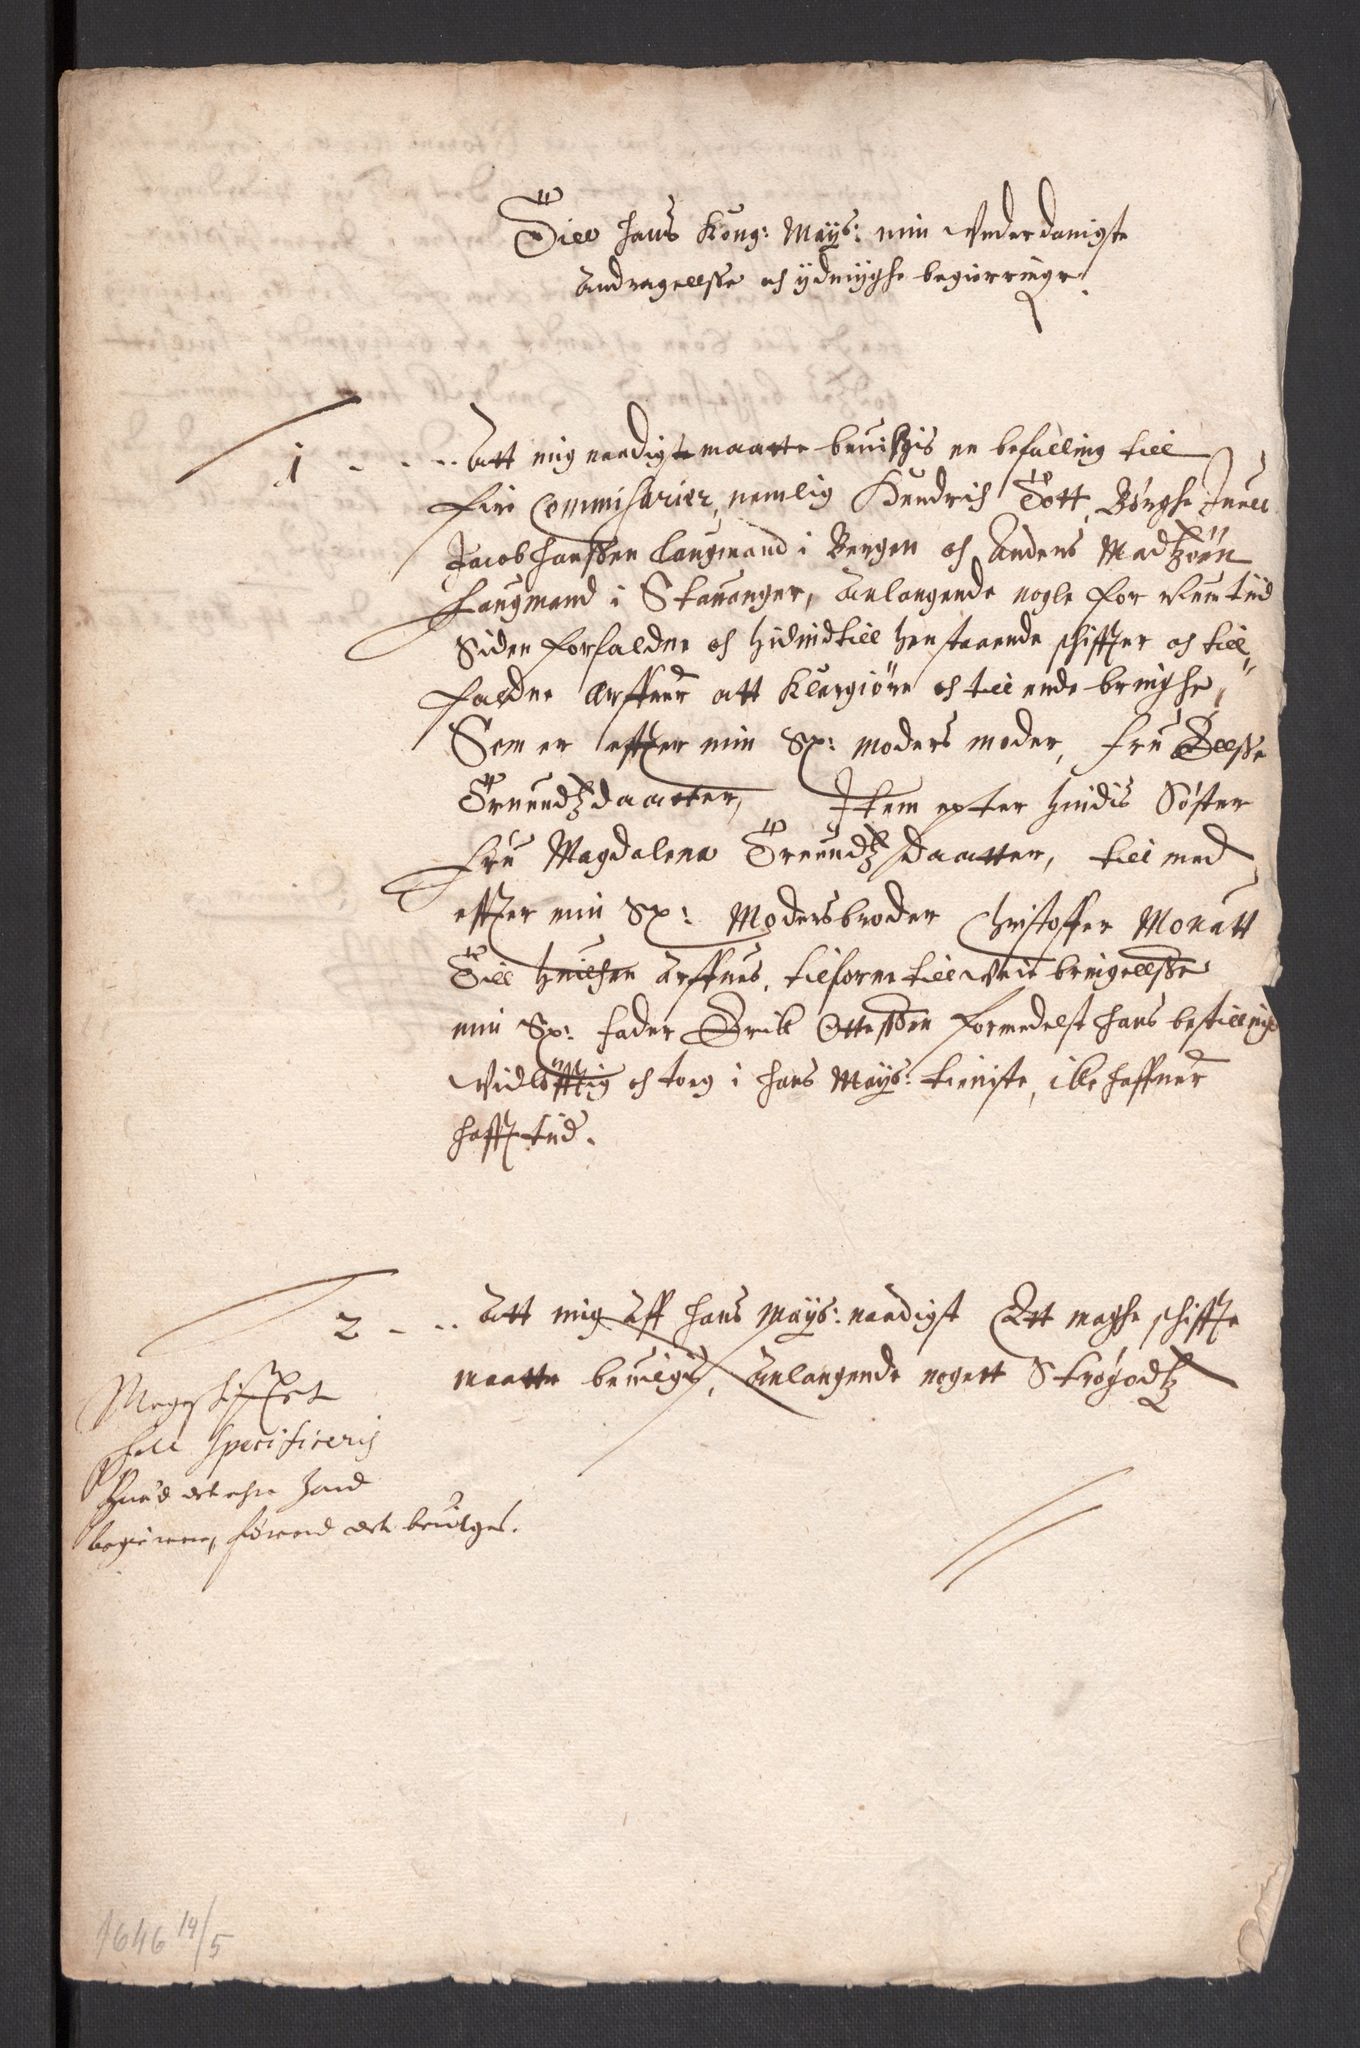 Till hans Kong: Mayts: min Vnderdanigste
Andragellsse och ydmyghe begierringe.
1 - - .. Att mig naadigste maatte beuilgis en befalling till
fire Commissarier, nemlig Hendrich Tott, Børghe Juell
Jacob Hanssen Laugmand i Bergen och Anders Madtzøn
Laugmand i Stauanger, Anlangende nogle for rum tiid
Siden forfaldne och hidindtill henstaaende schiffter och till
faldne Arffuer att Klargiøre och till ende bringhe,
Som er effter min Sl: moders moder, fru Dilsse
Truundtzdaatter, Item epter hindis Søster
fru Magdalena Truundtzdaatter, till med
effter min Sl: Modersbroder Christoffer Monatt
Till huilchen Arffues, tilforne till veie bringellsse
min Sl: fader Erik Ottessen formedelst hans bestilling
Vidløfftig och torg i hans Mayts: tieniste, ikke haffuer
hafft tiid.
2 - - .. Att mig Aff hans Mayts: naadigst Ett maghe schiffte
maatte beuilgis, Anlangende nogett Strøgodtz
Mageskifftet
skall specificeris
huad det ehre hand
begierer, førend det beuilges.
1646 14/5